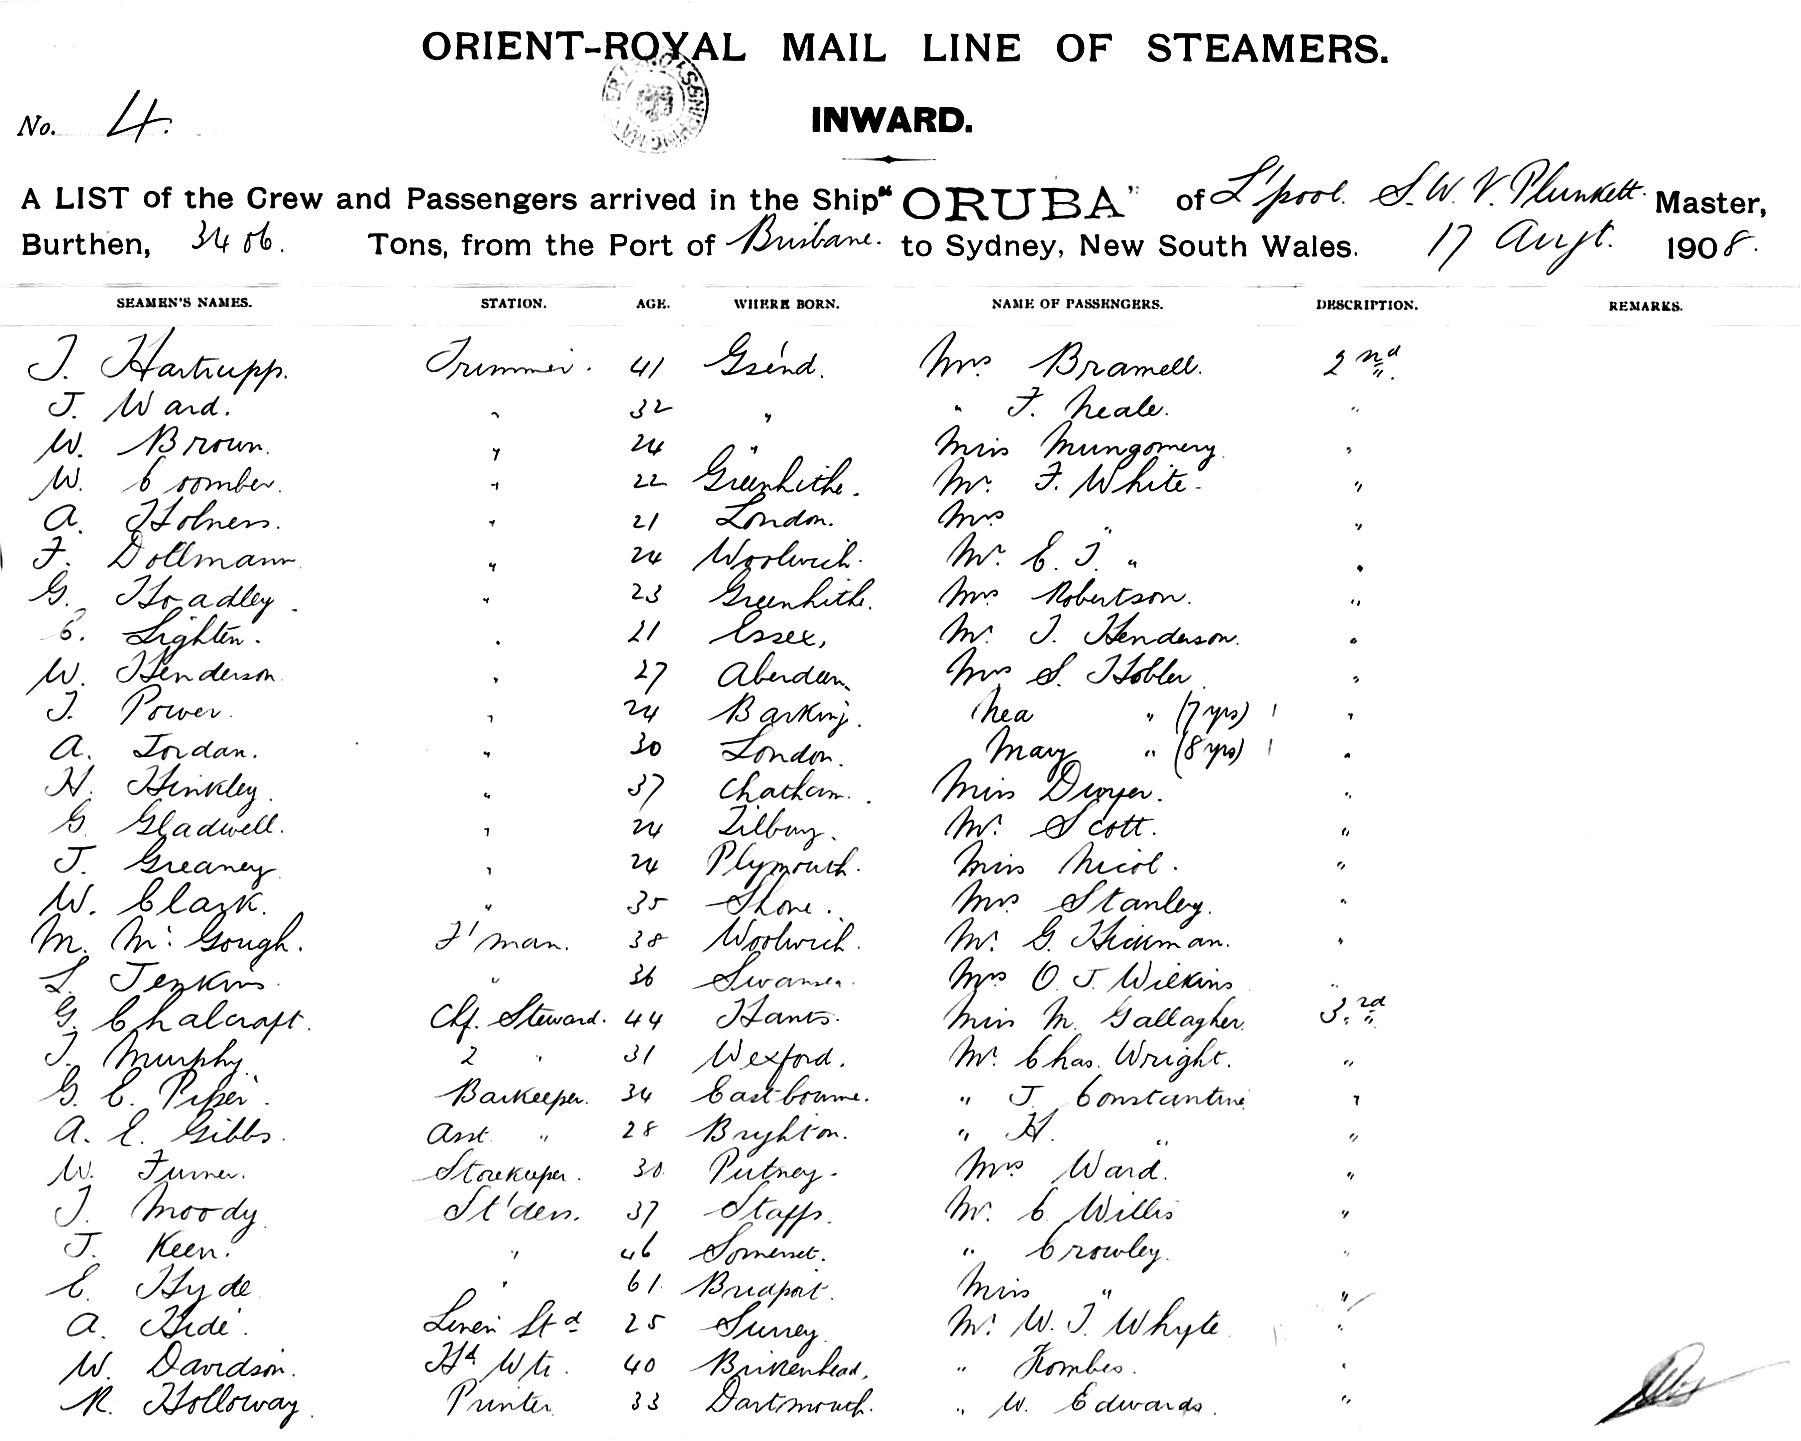 ORIENT-ROYAL MAIL LINE OF STEAMERS.
No. 4.
INWARD.
A LIST of the Crew and Passengers arrived in the Ship "ORUBA" of L'pool. S. W. V. Plunkett. Master,
Burthen, 3406. Tons, from the Port of Brisbane. to Sydney, New South Wales. 17 Augt. 1908.
SEAMEN'S NAMES. STATION. AGE. WHERE BORN. NAME OF PASSENGERS. DESCRIPTION. REMARKS.
J. Hartrupp. Trimmer. 41 G'send. Mrs Bramell. 2nd
J. Ward. " 32 " " F. Neale. "
W. Brown. " 24 " Miss Mungomery "
W. Coomber. " 22 Greenhithe. Mr. F. White. "
A. Holness. " 21 London. Mrs " "
F. Dollmann " 24 Woolwich. Mr. E. J. " "
G. Hoadley. " 23 Greenhithe. Mrs Robertson. "
C. Lighten. " 21 Essex, Mr. J. Henderson. "
W. Henderson " 27 Aberdeen. Mrs S. Hobler "
J. Power. " 24 Barking. Nea " (7 yrs) 1 "
A. Jordan. " 30 London. Mary " (8 yrs) 1 "
H. Hinkley. " 37 Chatham. Miss Dwyer. "
G. Gladwell. " 24 Tilbury. Mr. Scott. "
J. Greaney " 24 Plymouth. Miss Nicol. "
W. Clark. " 35 Shone. Mrs Stanley. "
M. Mc Gough. F'man. 38 Woolwich. Mr. G. Hickman. "
L. Jenkins. " 36 Swansea. Mrs O. J. Wilkins "
G. Chalcraft. Chf. Steward. 44 Hants. Miss M. Gallagher. 3rd
J. Murphy. 2 " 31 Wexford. Mr. Chas. Wright. "
G. E. Piper. Barkeeper. 34 Eastbourne. " J. Constantine "
A. E. Gibbs. Asst " 28 Bryhton. " H. " "
W. Turner. Storekeeper. 30 Putney. Mrs Ward. "
J. Moody St'dess. 37 Staffs. Mr. C Willis "
J. Keen. " 46 Somerset. " Crowley. "
E. Hyde " 61 Bridport. Miss " "
A. Hide. Linen Std 25 Surrey Mr. W. J. Whyte "
W. Davidson. Hd Wtr. 40 Birkenhead. " Hombes. "
R. Holloway. Printer 33 Dartmouth. " W. Edwards. "